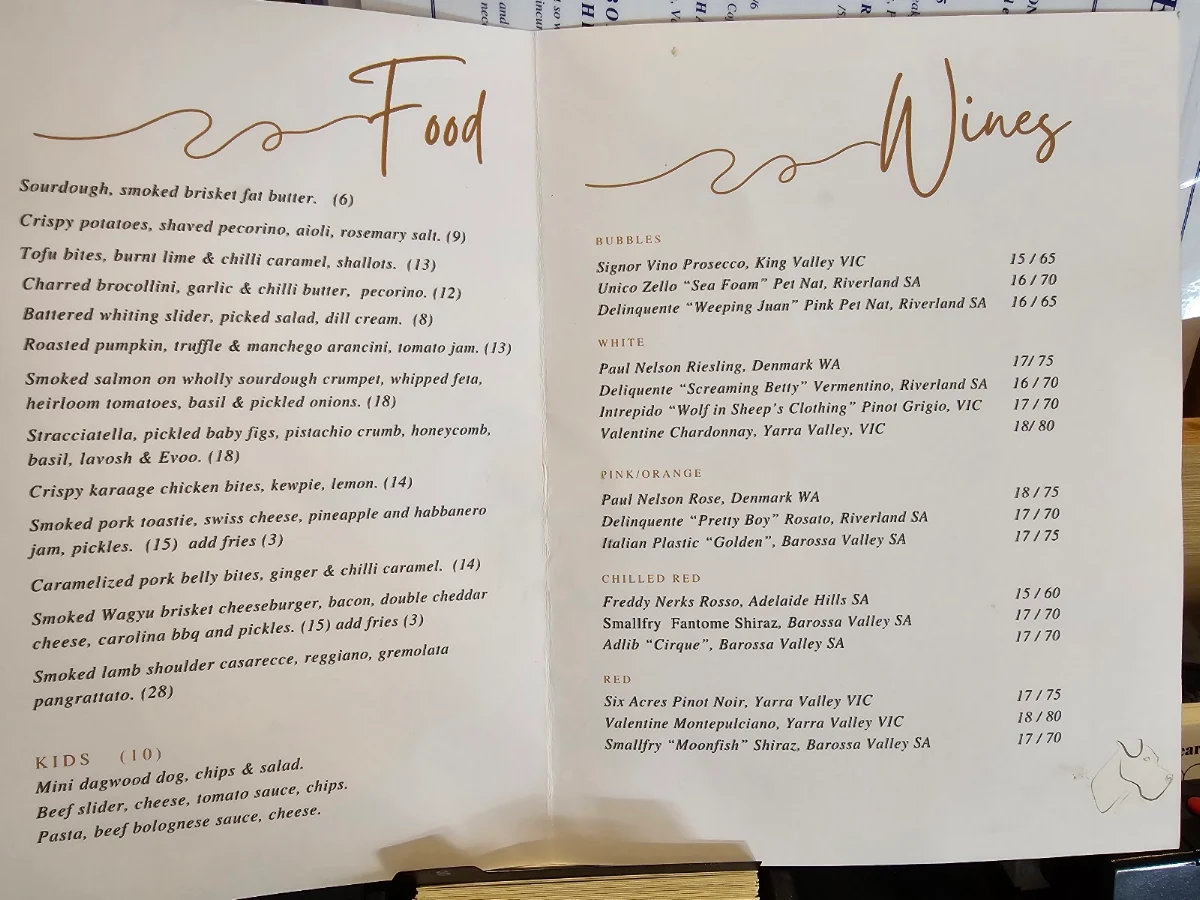 Food
Sourdough, smoked brisket fat butter. (6)
Crispy potatoes, shaved pecorino, aioli, rosemary salt. (9)
Tofu bites, burnt lime & chilli caramel, shallots. (13)
Charred brocollini, garlic & chilli butter, pecorino. (12)
Battered whiting slider, picked salad, dill cream. (8)
Roasted pumpkin, truffle & manchego arancini, tomato jam. (13)
Smoked salmon on wholly sourdough crumpet, whipped feta,
heirloom tomatoes, basil & pickled onions. (18)
Stracciatella, pickled baby figs, pistachio crumb, honeycomb,
basil, lavosh & Evoo. (18)
Crispy karaage chicken bites, kewpie, lemon. (14)
Smoked pork toastie, swiss cheese, pineapple and habbanero
jam, pickles. (15) add fries (3)
Caramelized pork belly bites, ginger & chilli caramel. (14)
Smoked Wagyu brisket cheeseburger, bacon, double cheddar
cheese, carolina bbq and pickles. (15) add fries (3)
Smoked lamb shoulder casarecce, reggiano, gremolata
pangrattato. (28)
KIDS (10)
Mini dagwood dog, chips & salad.
Beef slider, cheese, tomato sauce, chips.
Pasta, beef bolognese sauce, cheese.
Wines
BUBBLES
Signor Vino Prosecco, King Valley VIC 15 / 65
Unico Zello “Sea Foam” Pet Nat, Riverland SA 16 / 70
Delinquente “Weeping Juan” Pink Pet Nat, Riverland SA 16 / 65
WHITE
Paul Nelson Riesling, Denmark WA 17/ 75
Deliquente “Screaming Betty” Vermentino, Riverland SA 16 / 70
Intrepido “Wolf in Sheep’s Clothing” Pinot Grigio, VIC 17 / 70
Valentine Chardonnay, Yarra Valley, VIC 18/ 80
PINK/ORANGE
Paul Nelson Rose, Denmark WA 18 / 75
Delinquente “Pretty Boy” Rosato, Riverland SA 17 / 70
Italian Plastic “Golden”, Barossa Valley SA 17 / 75
CHILLED RED
Freddy Nerks Rosso, Adelaide Hills SA 15 / 60
Smallfry Fantome Shiraz, Barossa Valley SA 17 / 70
Adlib “Cirque”, Barossa Valley SA 17 / 70
RED
Six Acres Pinot Noir, Yarra Valley VIC 17 / 75
Valentine Montepulciano, Yarra Valley VIC 18 / 80
Smallfry “Moonfish” Shiraz, Barossa Valley SA 17 / 70